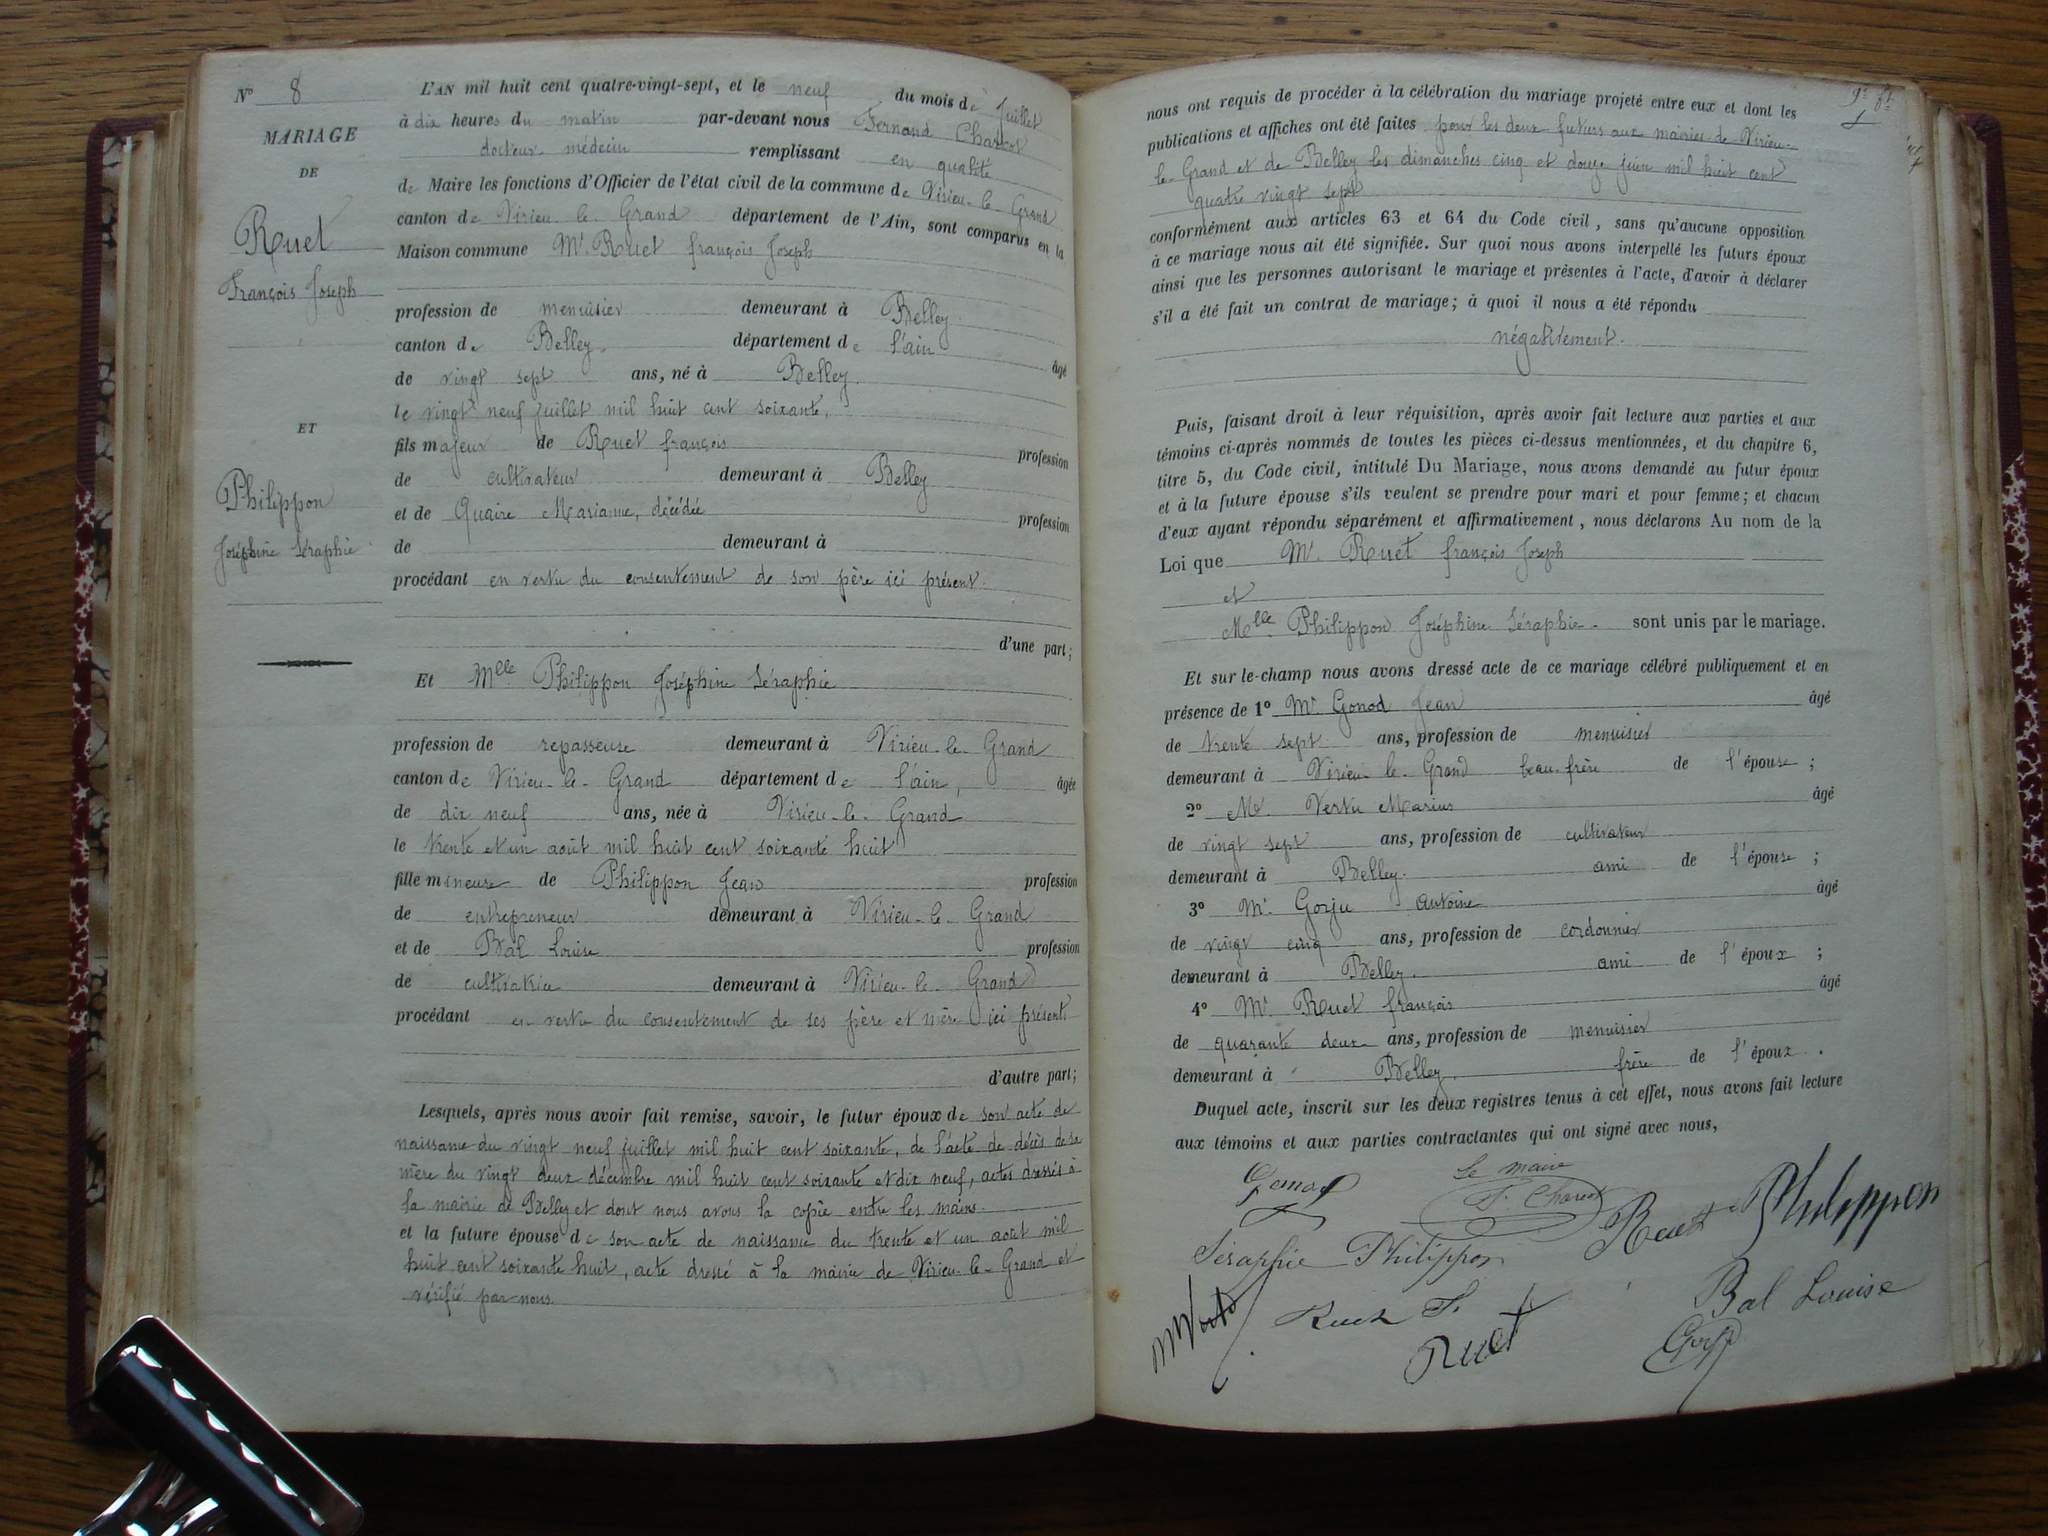 N° 8
MARIAGE
DE
Ruet
François Joseph
ET
Philippon
Joséphine Séraphie
L'AN mil huit cent quatre-vingt-sept, et le neuf du mois de Juillet
à dix heures du matin par-devant nous Fernand Charcot
docteur médecin remplissant en qualité
de Maire les fonctions d'Officier de l'état civil de la commune de Virieu-le-Grand
canton de Virieu-le-Grand département de l'Ain, sont comparus en la
Maison commune Mr Ruet françois Joseph
profession de menuisier demeurant à Belley
canton de Belley département de l'ain
âgé
de vingt sept ans, né à Belley
le vingt neuf juillet mil huit cent soixante,
fils majeur de Ruet françois profession
de cultivateur demeurant à Belley
et de Quaire Marianne, décédée profession
de demeurant à
procédant en vertu du consentement de son père ici présent.
d'une part;
Et Mlle Philippon Joséphine Séraphie
profession de repasseuse demeurant à Virieu-le-Grand
canton de Virieu-le-Grand département de l'ain, âgée
de dix neuf ans, née à Virieu-le-Grand
le trente et un août mil huit cent soixante huit
fille mineure de Philippon Jean profession
de entrepreneur demeurant à Virieu-le-Grand
et de Bal Louise profession
de cultivatrice demeurant à Virieu-le-Grand
procédant en vertu du consentement de ses père et mère ici présents
d'autre part;
Lesquels, après nous avoir fait remise, savoir, le futur époux de son acte de
naissance du vingt neuf juillet mil huit cent soixante, de l'acte de décès de sa
mère du vingt deux décembre mil huit cent soixante et dix neuf, actes dressés à
la mairie de Belley et dont nous avons la copie entre les mains.
et la future épouse de son acte de naissance du trente et un août mil
huit cent soixante huit, acte dressé à la mairie de Virieu-le-Grand et
vérifié par nous
nous ont requis de procéder à la célébration du mariage projeté entre eux et dont les
publications et affiches ont été faites pour les deux futurs aux mairies de Virieu-
le-Grand et de Belley les dimanches cinq et douze juin mil huit cent
quatre vingt sept
conformément aux articles 63 et 64 du Code civil, sans qu'aucune opposition
à ce mariage nous ait été signifiée. Sur quoi nous avons interpellé les futurs époux
ainsi que les personnes autorisant le mariage et présentes à l'acte, d'avoir à déclarer
s'il a été fait un contrat de mariage; à quoi il nous a été répondu
négativement.
Puis, faisant droit à leur réquisition, après avoir fait lecture aux parties et aux
témoins ci-après nommés de toutes les pièces ci-dessus mentionnées, et du chapitre 6,
titre 5, du Code civil, intitulé Du Mariage, nous avons demandé au futur époux
et à la future épouse s'ils veulent se prendre pour mari et pour femme; et chacun
d'eux ayant répondu séparément et affirmativement, nous déclarons Au nom de la
Loi que Mr Ruet françois Joseph
et
Mlle Philippon Joséphine Séraphie. sont unis par le mariage.
Et sur-le-champ nous avons dressé acte de ce mariage célébré publiquement et en
présence de 1° Mr Gonod Jean âgé
de trente sept ans, profession de menuisier
demeurant à Virieu-le-Grand beau-frère de l'épouse ;
2° Mr Vertu Marius âgé
de vingt sept ans, profession de cultivateur
demeurant à Belley. ami de l'épouse ;
3° Mr Gorju Antoine âgé
de vingt cinq ans, profession de cordonnier
demeurant à Belley. ami de l'époux ;
4° Mr Ruet françois âgé
de quarante deux ans, profession de menuisier
demeurant à Belley. frère de l'époux .
Duquel acte, inscrit sur les deux registres tenus à cet effet, nous avons fait lecture
aux témoins et aux parties contractantes qui ont signé avec nous,
Le maire
Gonod F. Charcot Ruet Philippon
Séraphie Philippon
Ruet F. Bal Louise
Ruet